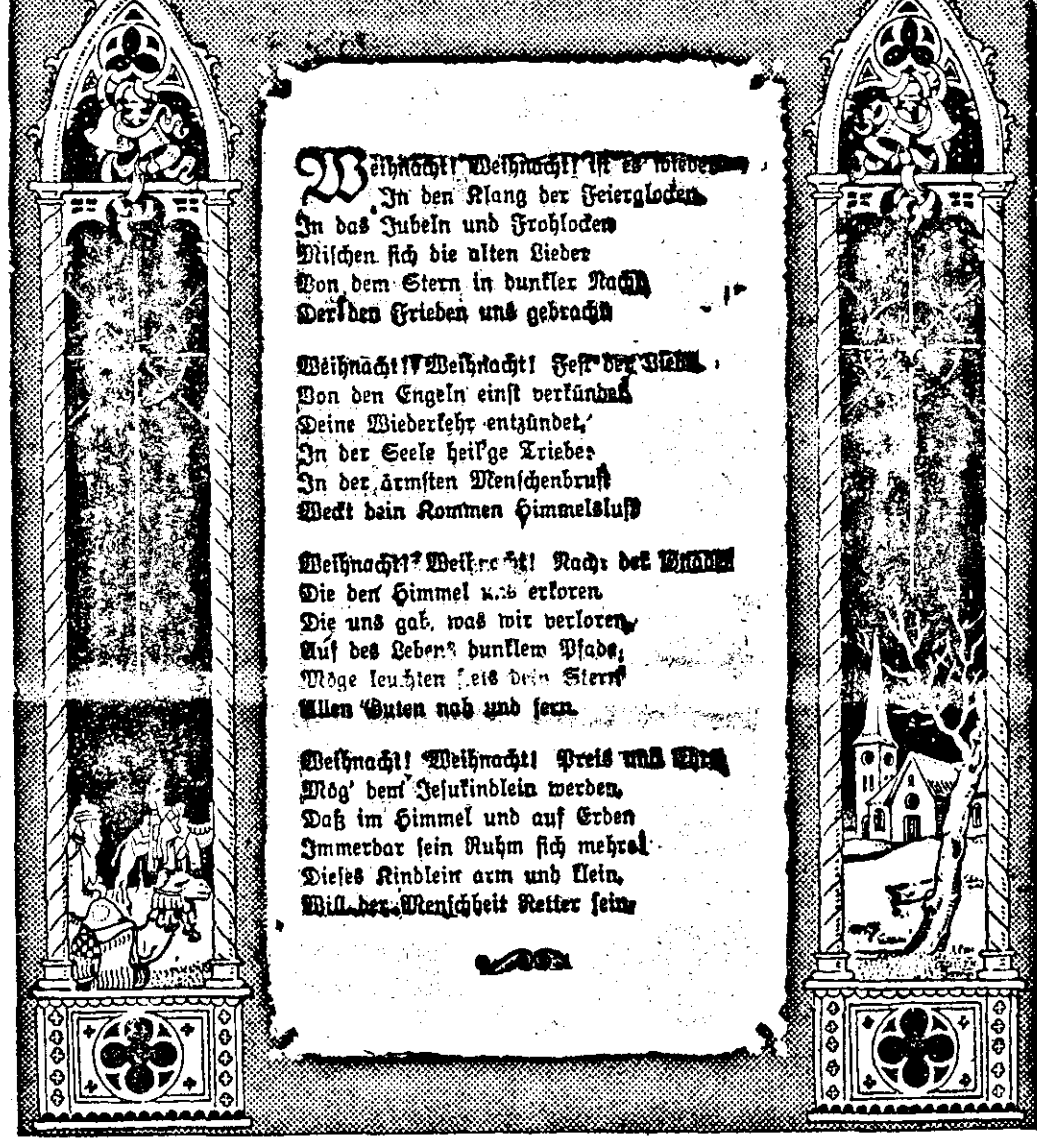 Weihnacht! Weihnacht! ist es wieder
In den Klang der Feierglocken,
In das Jubeln und Frohlocken
Mischen sich die alten Lieder
Von dem Stern in dunkler Nacht
Der den Frieden uns gebracht
Weihnacht! Weihnacht! Fest der Liebe,
Von den Engeln einst verkündet
Deine Wiederkehr entzündet,
In der Seele heil'ge Triebe:
In der ärmsten Menschenbrust
Weckt dein Kommen Himmelslust
Weihnacht! Weihnacht! Nacht der Gnaden
Die den Himmel uns erkoren
Die uns gab, was wir verloren,
Auf des Lebens dunklem Pfade,
Möge leuchten stets dein Stern
Allen Guten nah und fern.
Weihnacht! Weihnacht! Preis und Ehre
Mög' dem Jesukindlein werden,
Daß im Himmel und auf Erden
Immerdar sein Ruhm sich mehre!
Dieses Kindlein arm und klein,
Will der Menschheit Retter sein.